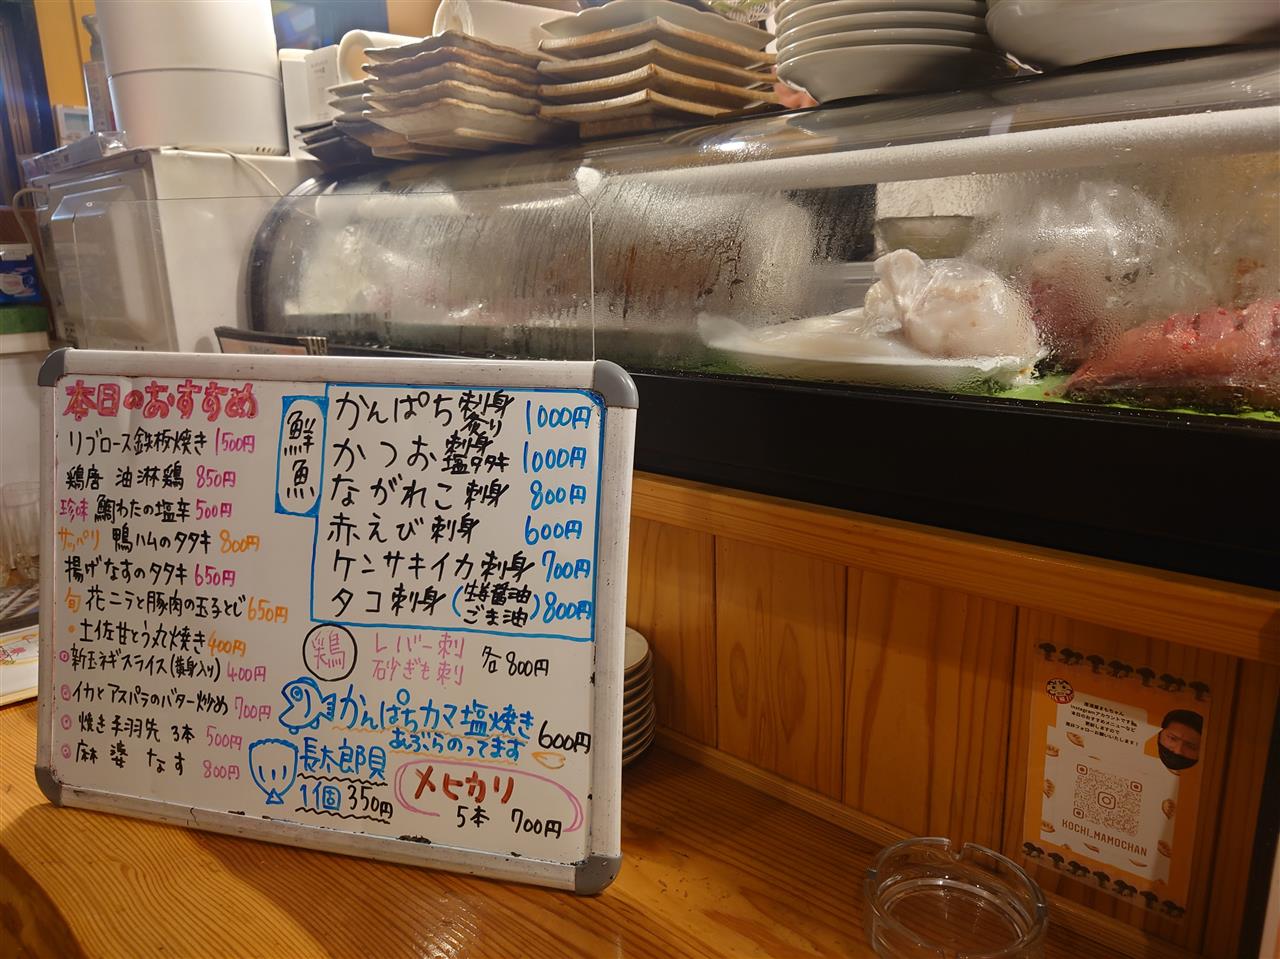 本日のおすすめ
リブロース鉄板焼き 1500円
鶏唐 油淋鶏 850円
珍味 鯛わたの塩辛 500円
サッパリ 鴨ハムのタタキ 800円
揚げなすのタタキ 650円
旬 花ニラと豚肉の玉子とじ 650円
・土佐甘とう丸焼き 400円
新玉ネギスライス(黄身入り) 400円
イカとアスパラのバター炒め 700円
焼き手羽先 3本 500円
麻婆なす 800円
鮮魚
かんぱち 刺身 炙り 1000円
かつお 刺身 塩タタキ 1000円
ながれこ 刺身 800円
赤えび 刺身 600円
ケンサキイカ 刺身 700円
タコ 刺身 (生姜醤油 ごま油) 800円
鶏 レバー刺
砂ぎも刺
各800円
かんぱちカマ塩焼き 600円
あぶらのってます
長太郎貝
1個 350円
メヒカリ
5本 700円
居酒屋まもちゃん
Instagramアカウントです
本日のおすすめメニューなど
更新しますので
是非フォローお願いいたします!
KOCHI_MAMOCHAN